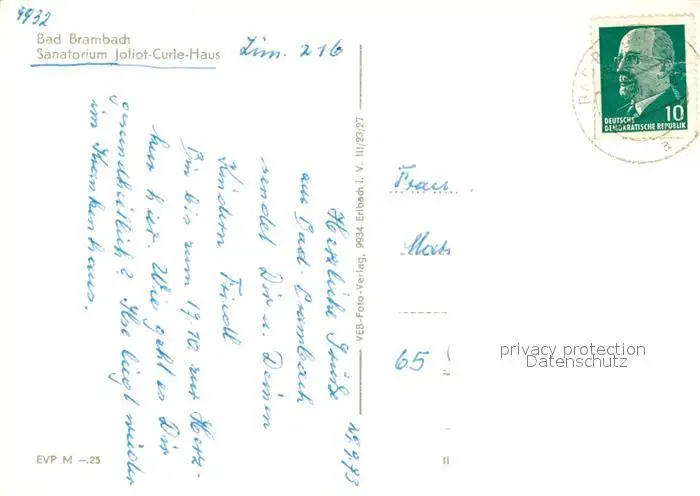 9932
Bad Brambach
Sanatorium Joliot-Curie-Haus
Zim. 216
DEUTSCHE
DEMOKRATISCHE REPUBLIK
10
a
29.9.73
Herzliche Grüße
aus Bad-Brambach
sendet Dir u. Deinen
Kindern Friedl.
Bin bis zum 19.10. zur Herz-
kur hier. Wie geht es Dir
gesundheitlich? Ilse liegt wieder
im Krankenhaus.
VEB-Foto-Verlag, 9934 Erlbach i. V. III/23/27
Frau
65
privacy protection
Datenschutz
EVP M –.25